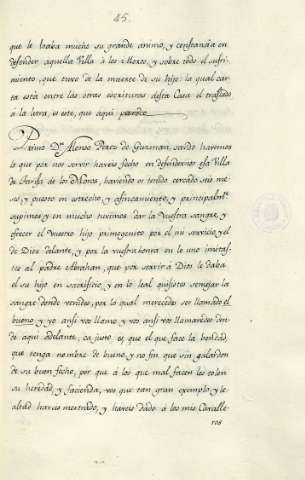 45.
que le loaba mucho su grande animo, y constancia en
defender aquella Villa à los Moros, y sobre todo el sufri-
miento, que tuvo à la muerte de su hijo: la qual car-
ta està entre las otras escrituras desta Casa el traslado
à la letra, es este, que aqui parece
Primo Dn. Alonso Perez de Guzman, savido havemos
lo que por nos servir haveis fecho en defendernos esa Villa
de Tarifa de los Moros, haviendo os tenido cercado seis me-
ses, y puesto en estrecho, y afincamiento, y principalmte.
supimos y en mucho tuvimos dar la Vuestra sangre, y
ofrecer el vuestro hijo primogenito por el mi servicio, y el
de Dios delante, y por la vuestra honra en lo uno imitas-
tes al padre Abrahan, que por servir à Dios le daba
el su hijo en sacrificio, y en lo leal quisistes semejar la
sangre donde venides, por lo qual mereceis ser llamado el
bueno, y yo ansi vos llamo, y vos ansi vos llamaredes den-
de aqui adelante, ca justo es, que el que face la bondad,
que tenga nombre de bueno, y no finque sin galardon
de su buen fecho, por que à los que mal facen les tolen
su heredad, y facienda, vos que tan gran exemplo, y le-
altad haveis mostrado, y haveis dado à los mis Cavalle-
ros